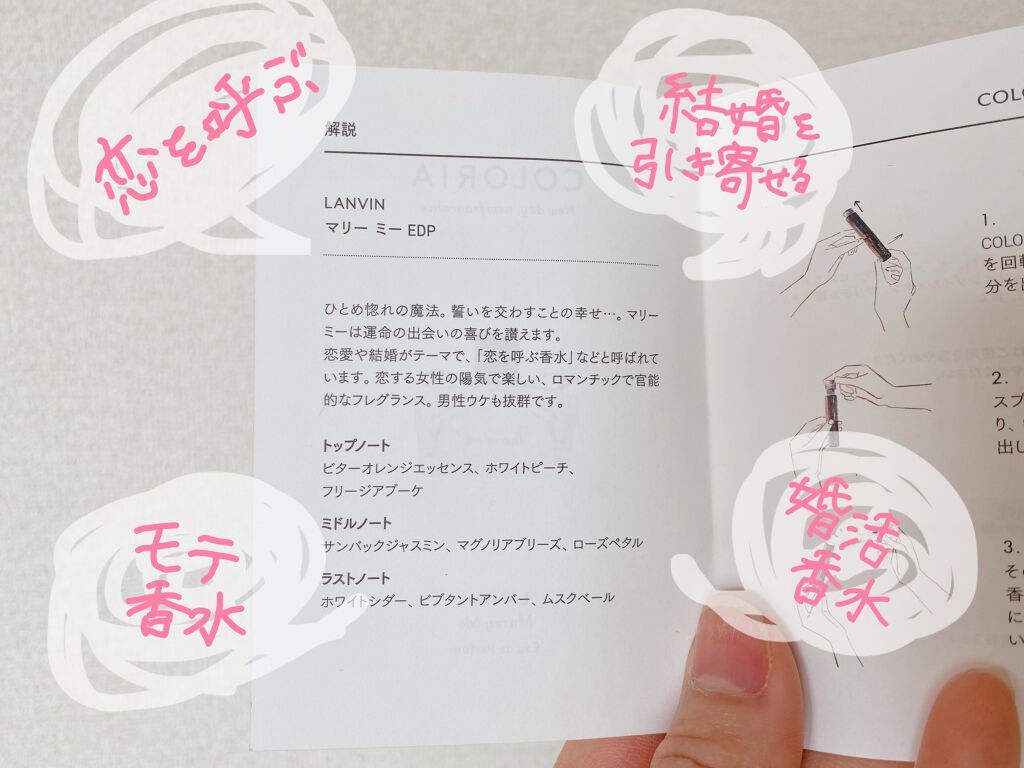 恋を呼ぶ
結婚を
引き寄せる
モテ
香水
婚活
香水
解説
LANVIN
マリー ミー EDP
ひとめ惚れの魔法。誓いを交わすことの幸せ…。マリー
ミーは運命の出会いの喜びを讃えます。
恋愛や結婚がテーマで、「恋を呼ぶ香水」などと呼ばれて
います。恋する女性の陽気で楽しい、ロマンチックで官能
的なフレグランス。男性ウケも抜群です。
トップノート
ビターオレンジエッセンス、ホワイトピーチ、
フリージアブーケ
ミドルノート
サンバックジャスミン、マグノリアブリーズ、ローズペタル
ラストノート
ホワイトシダー、ビブタントアンバー、ムスクベール
COLO
1.
COLO
を回転
分を出
2.
スプ
り、
出し
3.
その
香
に
い
COLORIA
New day, new fragrance
Marry Me
Eau de Parfum